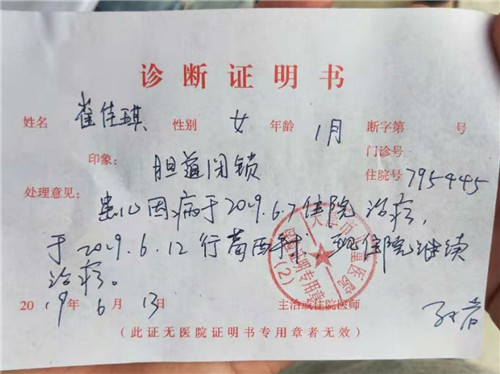 诊断证明书
姓名 崔佳琪 性别 女 年龄 1月 断字第 号
门诊号
印象: 胆道闭锁 住院号 795445
处理意见: 患儿因病于2019.6.7住院治疗,
于2019.6.12行葛西手术,现住院继续
治疗。
2019年6月13日 主治或住院医师
(此证无医院证明书专用章者无效)